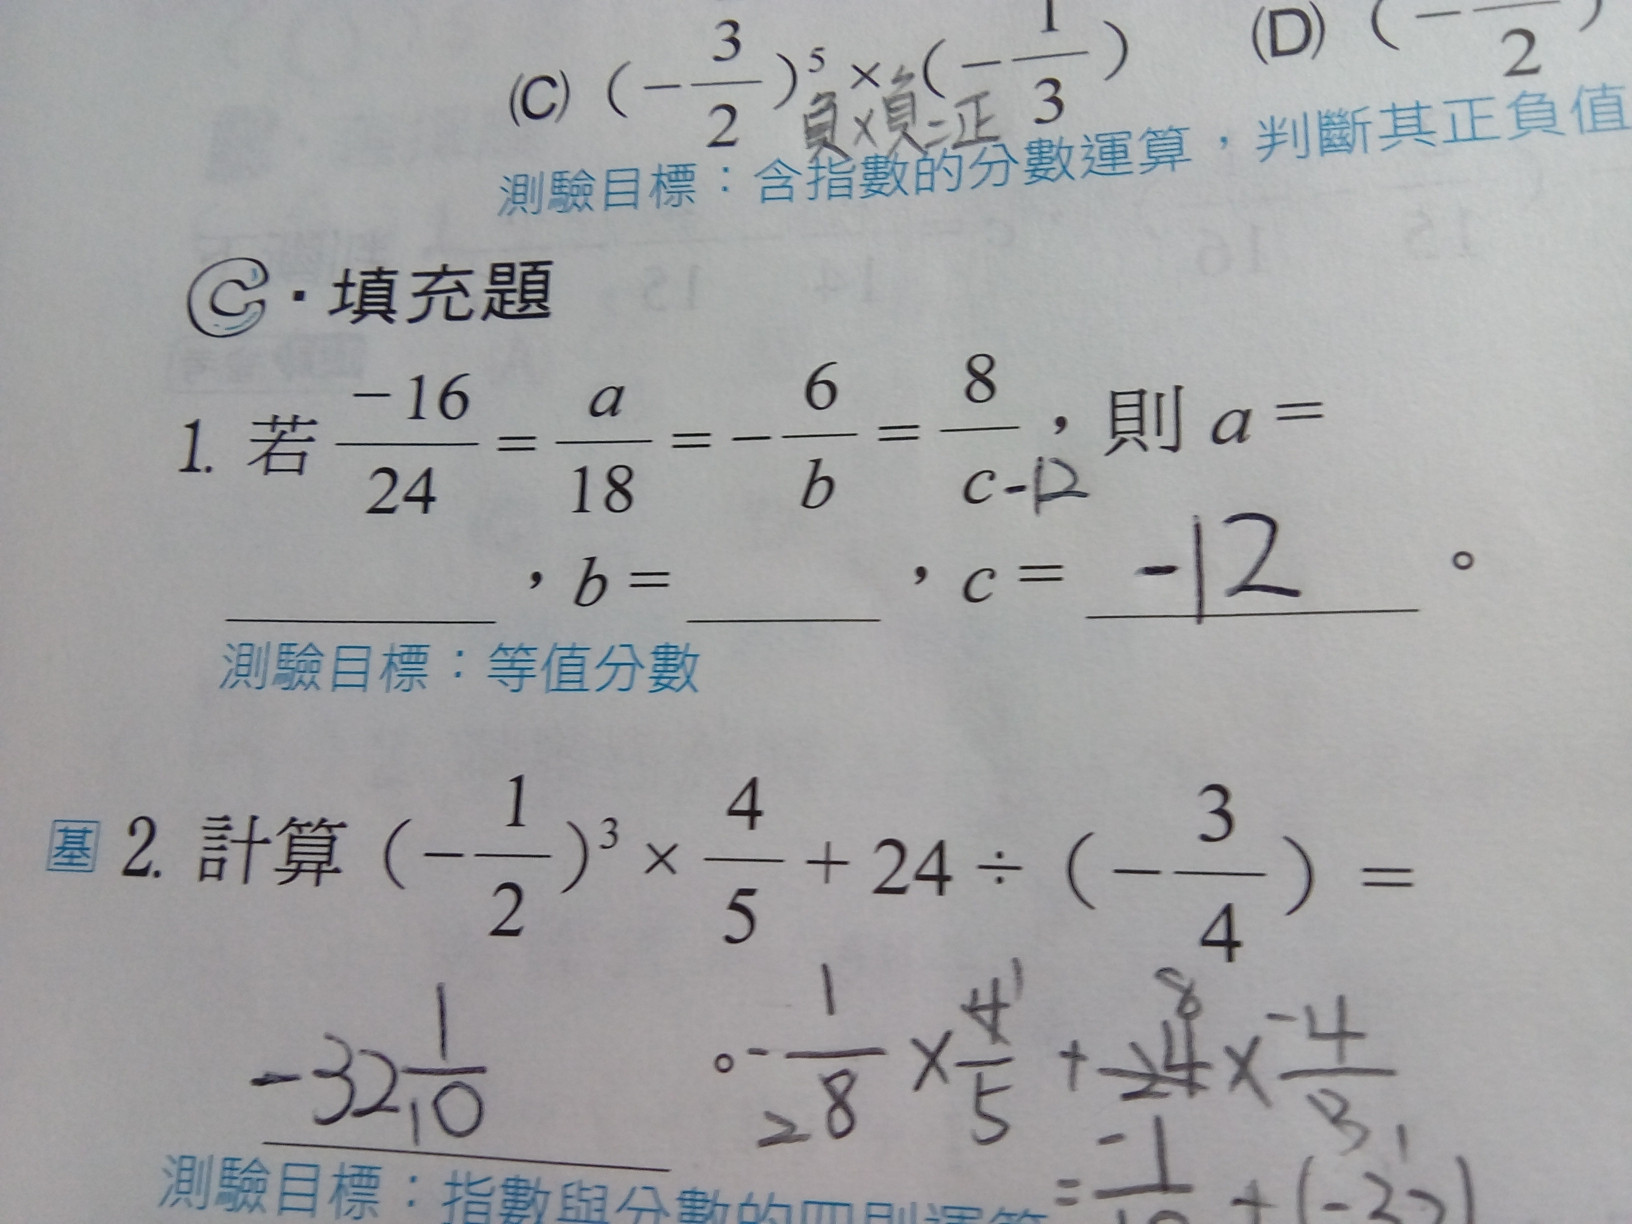 (C) (－3/2)⁵ × (－1/3) (D) (－ /2)
負×負=正
測驗目標：含指數的分數運算，判斷其正負值
C·填充題
1. 若 －16/24 = a/18 = －6/b = 8/c，則 a =
-12
，b = ，c = -12 。
測驗目標：等值分數
基 2. 計算 (－1/2)³ × 4/5 + 24 ÷ (－3/4) =
-32 1/10 。
- 1/8 × 4/5 + 24 × -4/3
2 1 8 1
= -1/10 + (-32)
測驗目標：指數與分數的四則運算